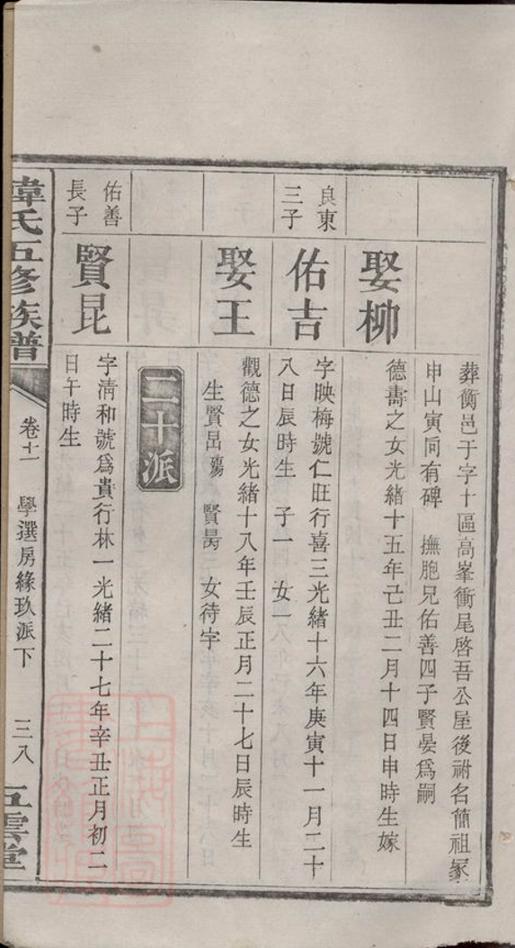 葬衡邑于字十區高峯衝尾啓吾公屋後祔名簡祖冢
申山寅向有碑　撫胞兄佑善四子賢晏為嗣
娶柳
德壽之女光緒十五年己丑二月十四日申時生嫁
良東
三子
佑吉
字映梅號仁旺行喜三光緒十六年庚寅十一月二十
八日辰時生　子一　女一
娶王
觀德之女光緒十八年壬辰正月二十七日辰時生
生賢昷殤　賢昺　女待字
二十派
佑善
長子
賢昆
字清和號爲貴行林一光緒二十七年辛丑正月初二
日午時生
韋氏五修族譜
卷十一
學選房緣玖派下
三八
五雲堂